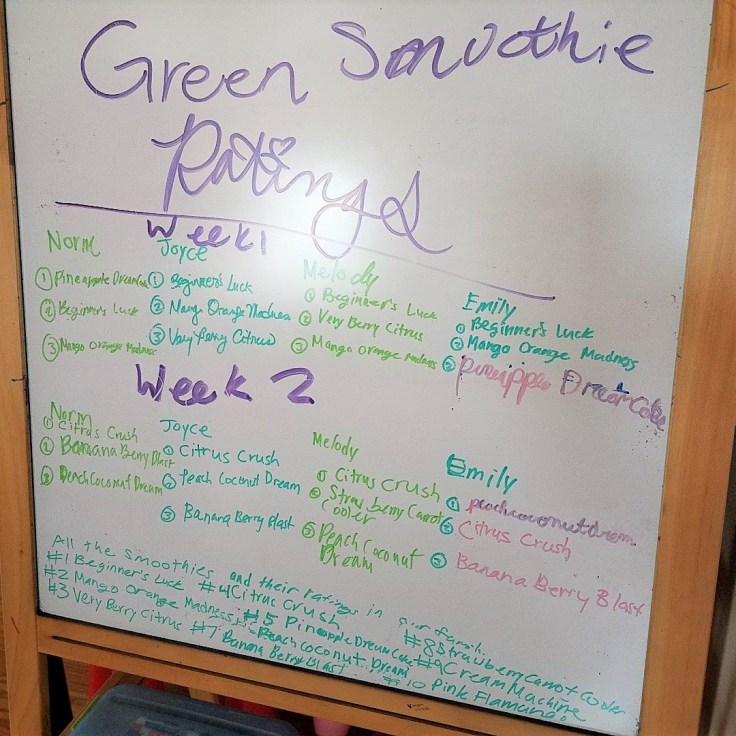 Green Smoothie
Ratings
Week 1
Norm
① Pineapple Dreamcake
② Beginner's Luck
③ Mango Orange Madness
Joyce
① Beginner's Luck
② Mango Orange Madness
③ Very Berry Citrus
Melody
① Beginner's Luck
② Very Berry Citrus
③ Mango Orange Madness
Emily
① Beginner's Luck
② Mango Orange Madness
③ Pineapple DreamCake
Week 2
Norm
① Citrus Crush
② Banana Berry Blast
③ Peach Coconut Dream
Joyce
① Citrus Crush
② Peach Coconut Dream
③ Banana Berry Blast
Melody
① Citrus Crush
② Strawberry Carrot
Cooler
③ Peach Coconut
Dream
Emily
① peachcoconutdream
② Citrus Crush
③ Banana Berry Blast
All the smoothies and their ratings in our family.
#1 Beginner's Luck #4 Citrus Crush
#2 Mango Orange Madness #5 Pineapple Dream Cake
#3 Very Berry Citrus Peach Coconut Dream
#7 Banana Berry Blast
#8 Strawberry Carrot Cooler
#9 Cream Machine
#10 Pink Flamingo.